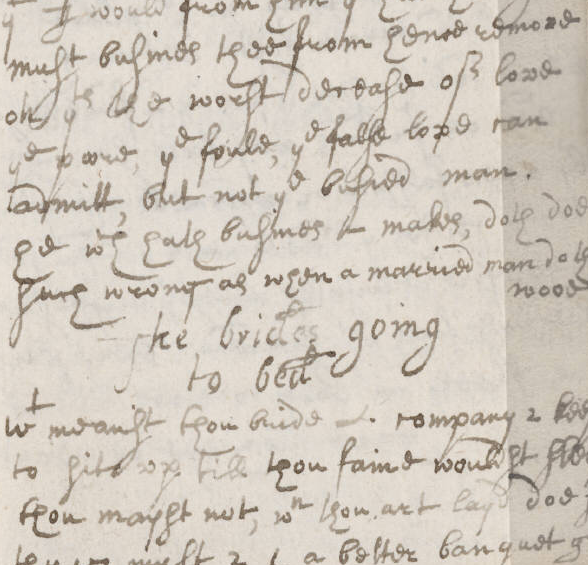 yt I would from him yt
must busines thee from hence remove
oh yts the worst decease of love
ye poore, ye foule, ye false love can
admitt, but not ye busied man.
he wch hath busines & makes, doth doe
such wrong as when a married man doth
wooe
The brides going
to bed
wt meanest thou bride company 2 keep
to sitt up till thou faine wouldst sle
thou mayst not, wn thou art layd doe
must a better banquet